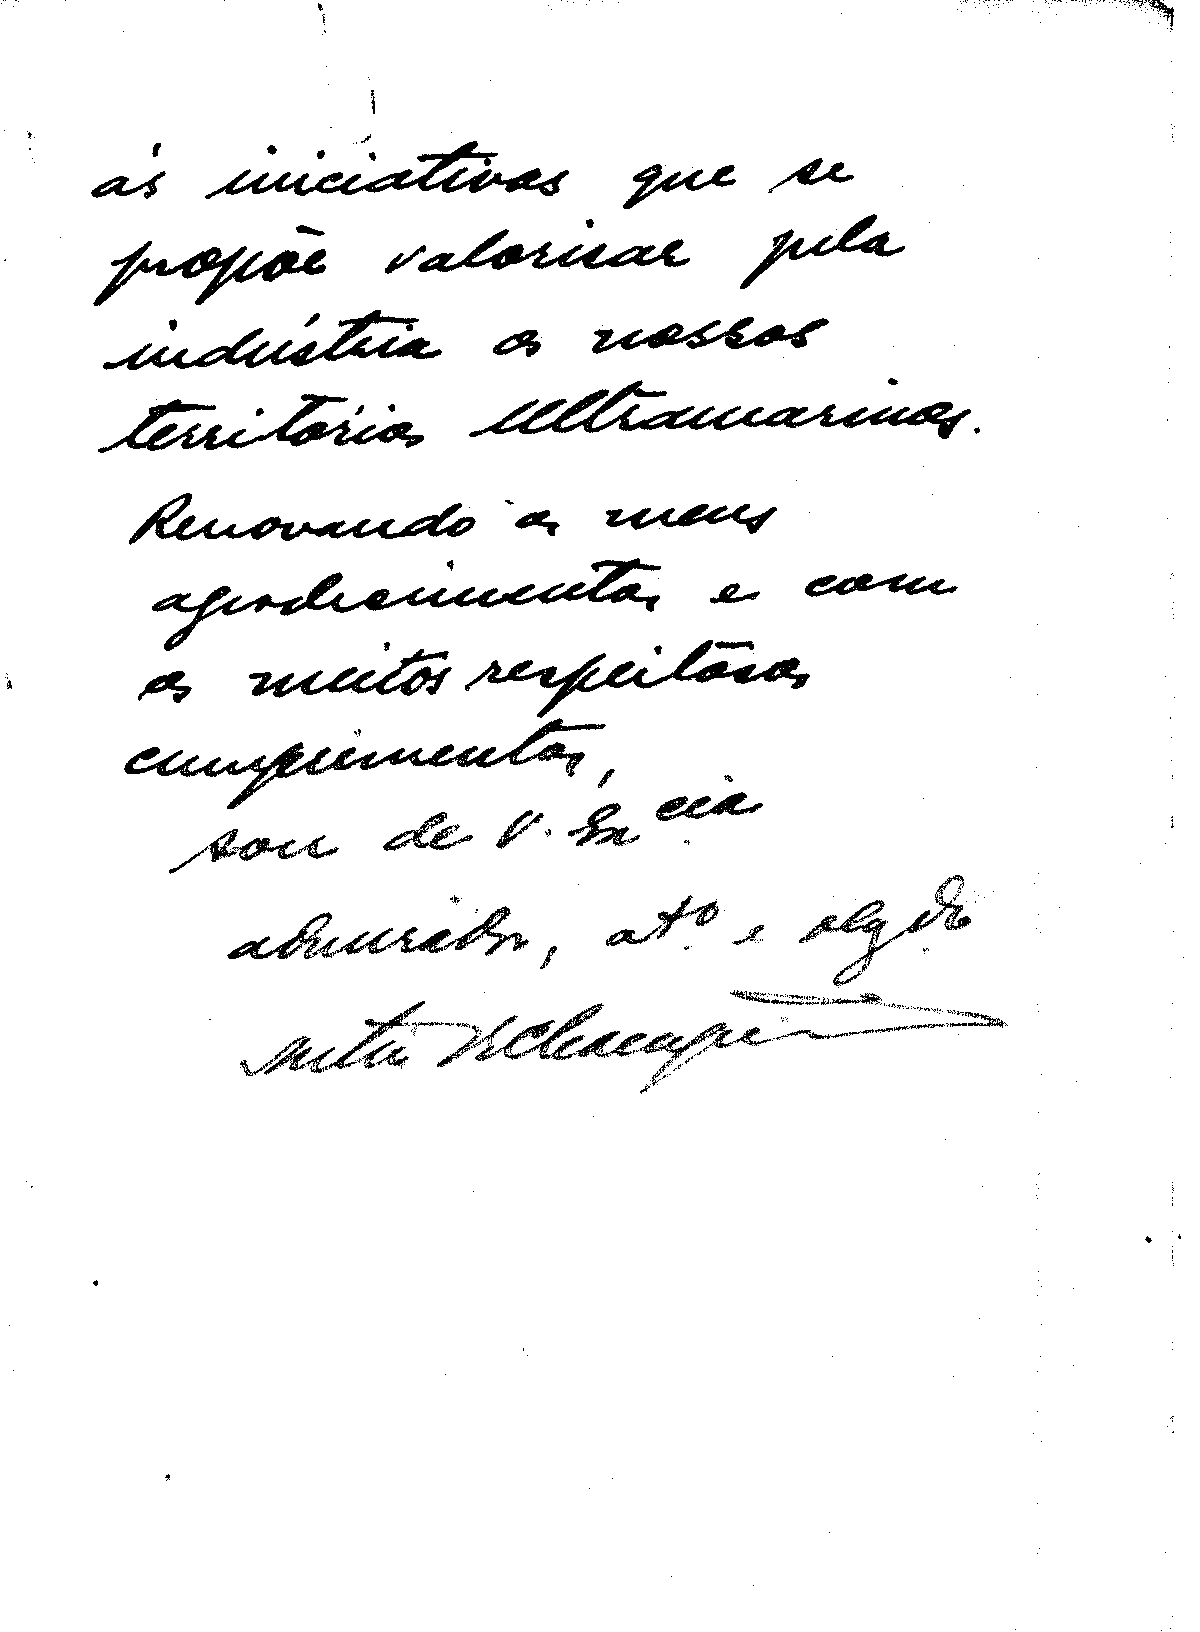 ás iniciativas que se
propõe valorisar pela
indústria os nossos
territórios Ultramarinos.
Renovando os meus
agradecimentos e com
os muitos respeitósos
cumprimentos,
sou de V. Excia
admirador, at.º e obgdo